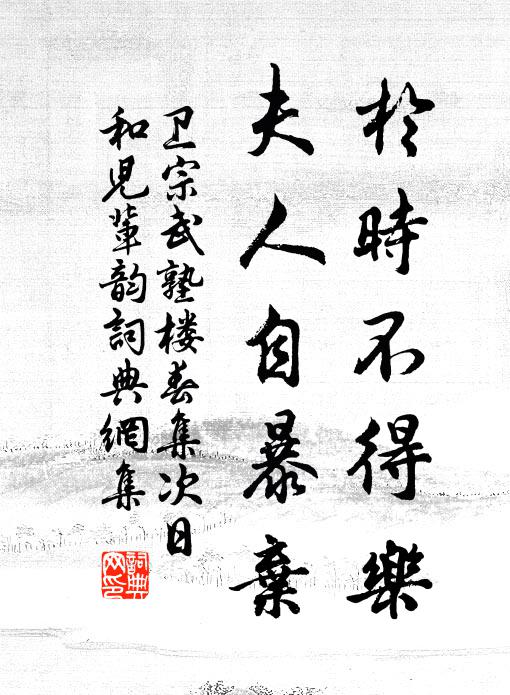 於時不得樂
夫人自暴棄
卫宗武塾楼春集次日
和児輩韵詞典網集
詞典
网印